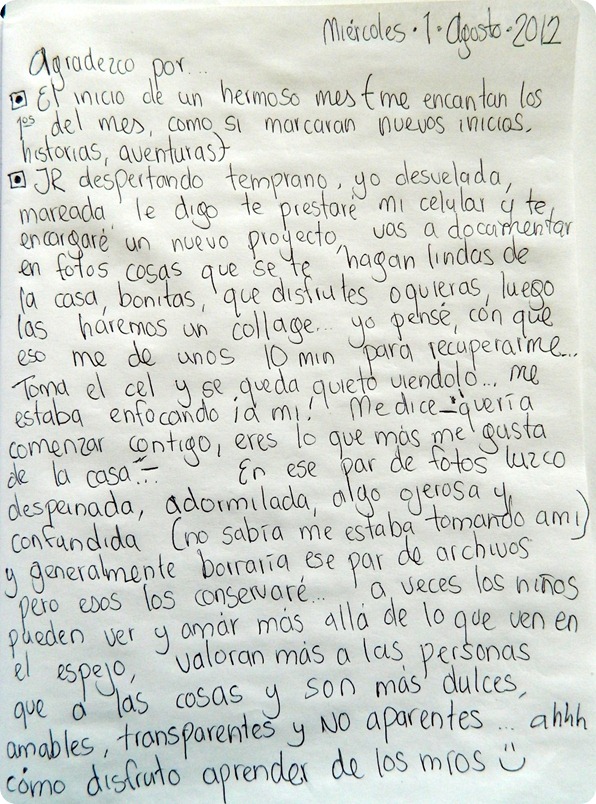 Miércoles · 1 · Agosto · 2012
Agradezco por...
El inicio de un hermoso mes (me encantan los
1os del mes, como si marcaran nuevos inicios,
historias, aventuras)
JR despertando temprano, yo desvelada,
mareada le digo te prestaré mi celular y te
encargaré un nuevo proyecto, vas a documentar
en fotos cosas que se te hagan lindas de
la casa, bonitas, que disfrutes o quieras, luego
las haremos un collage... yo pensé, con que
eso me de unos 10 min para recuperarme...
Toma el cel y se queda quieto viendolo... me
estaba enfocando ¡a mi! Me dice - quería
comenzar contigo, eres lo que más me gusta
de la casa... - En ese par de fotos luzco
despeinada, adormilada, algo ojerosa y
confundida (no sabía me estaba tomando a mi)
y generalmente borraría ese par de archivos
pero esos los conservaré... a veces los niños
pueden ver y amar más allá de lo que ven en
el espejo, valoran más a las personas
que a las cosas y son más dulces,
amables, transparentes y NO aparentes... ahhh
cómo disfruto aprender de los míos